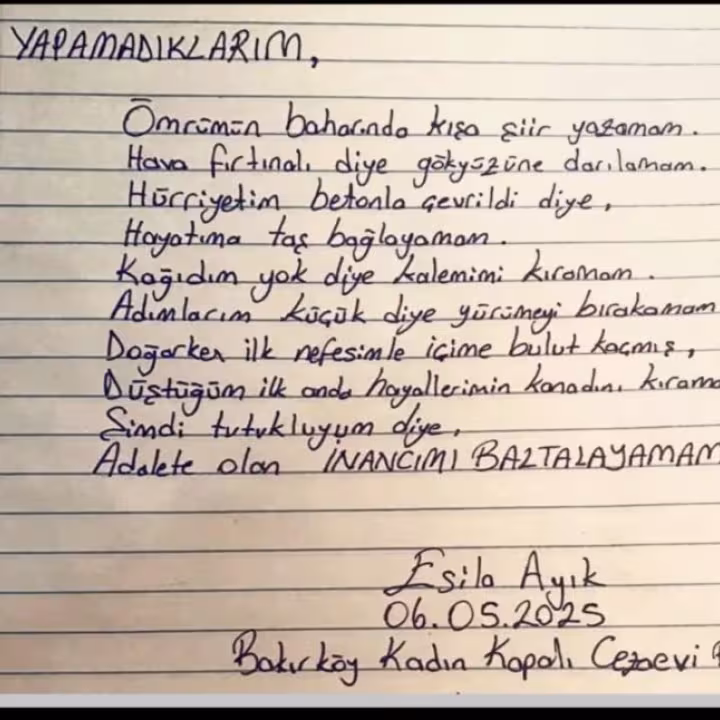 YAPAMADIKLARIM,
Ömrümün baharında kısa şiir yazamam.
Hava fırtınalı diye gökyüzüne darılamam.
Hürriyetim betonla çevrildi diye,
Hayatıma taş bağlayamam.
Kağıdım yok diye kalemimi kıramam.
Adımlarım küçük diye yürümeyi bırakamam
Doğarken ilk nefesimle içime bulut kaçmış,
Düştüğüm ilk anda hayallerimin kanadını kırama
Şimdi tutukluyum diye,
Adalete olan İNANCIMI BALTALAYAMAM
Esila Ayık
06.05.2025
Bakırköy Kadın Kapalı Cezaevi